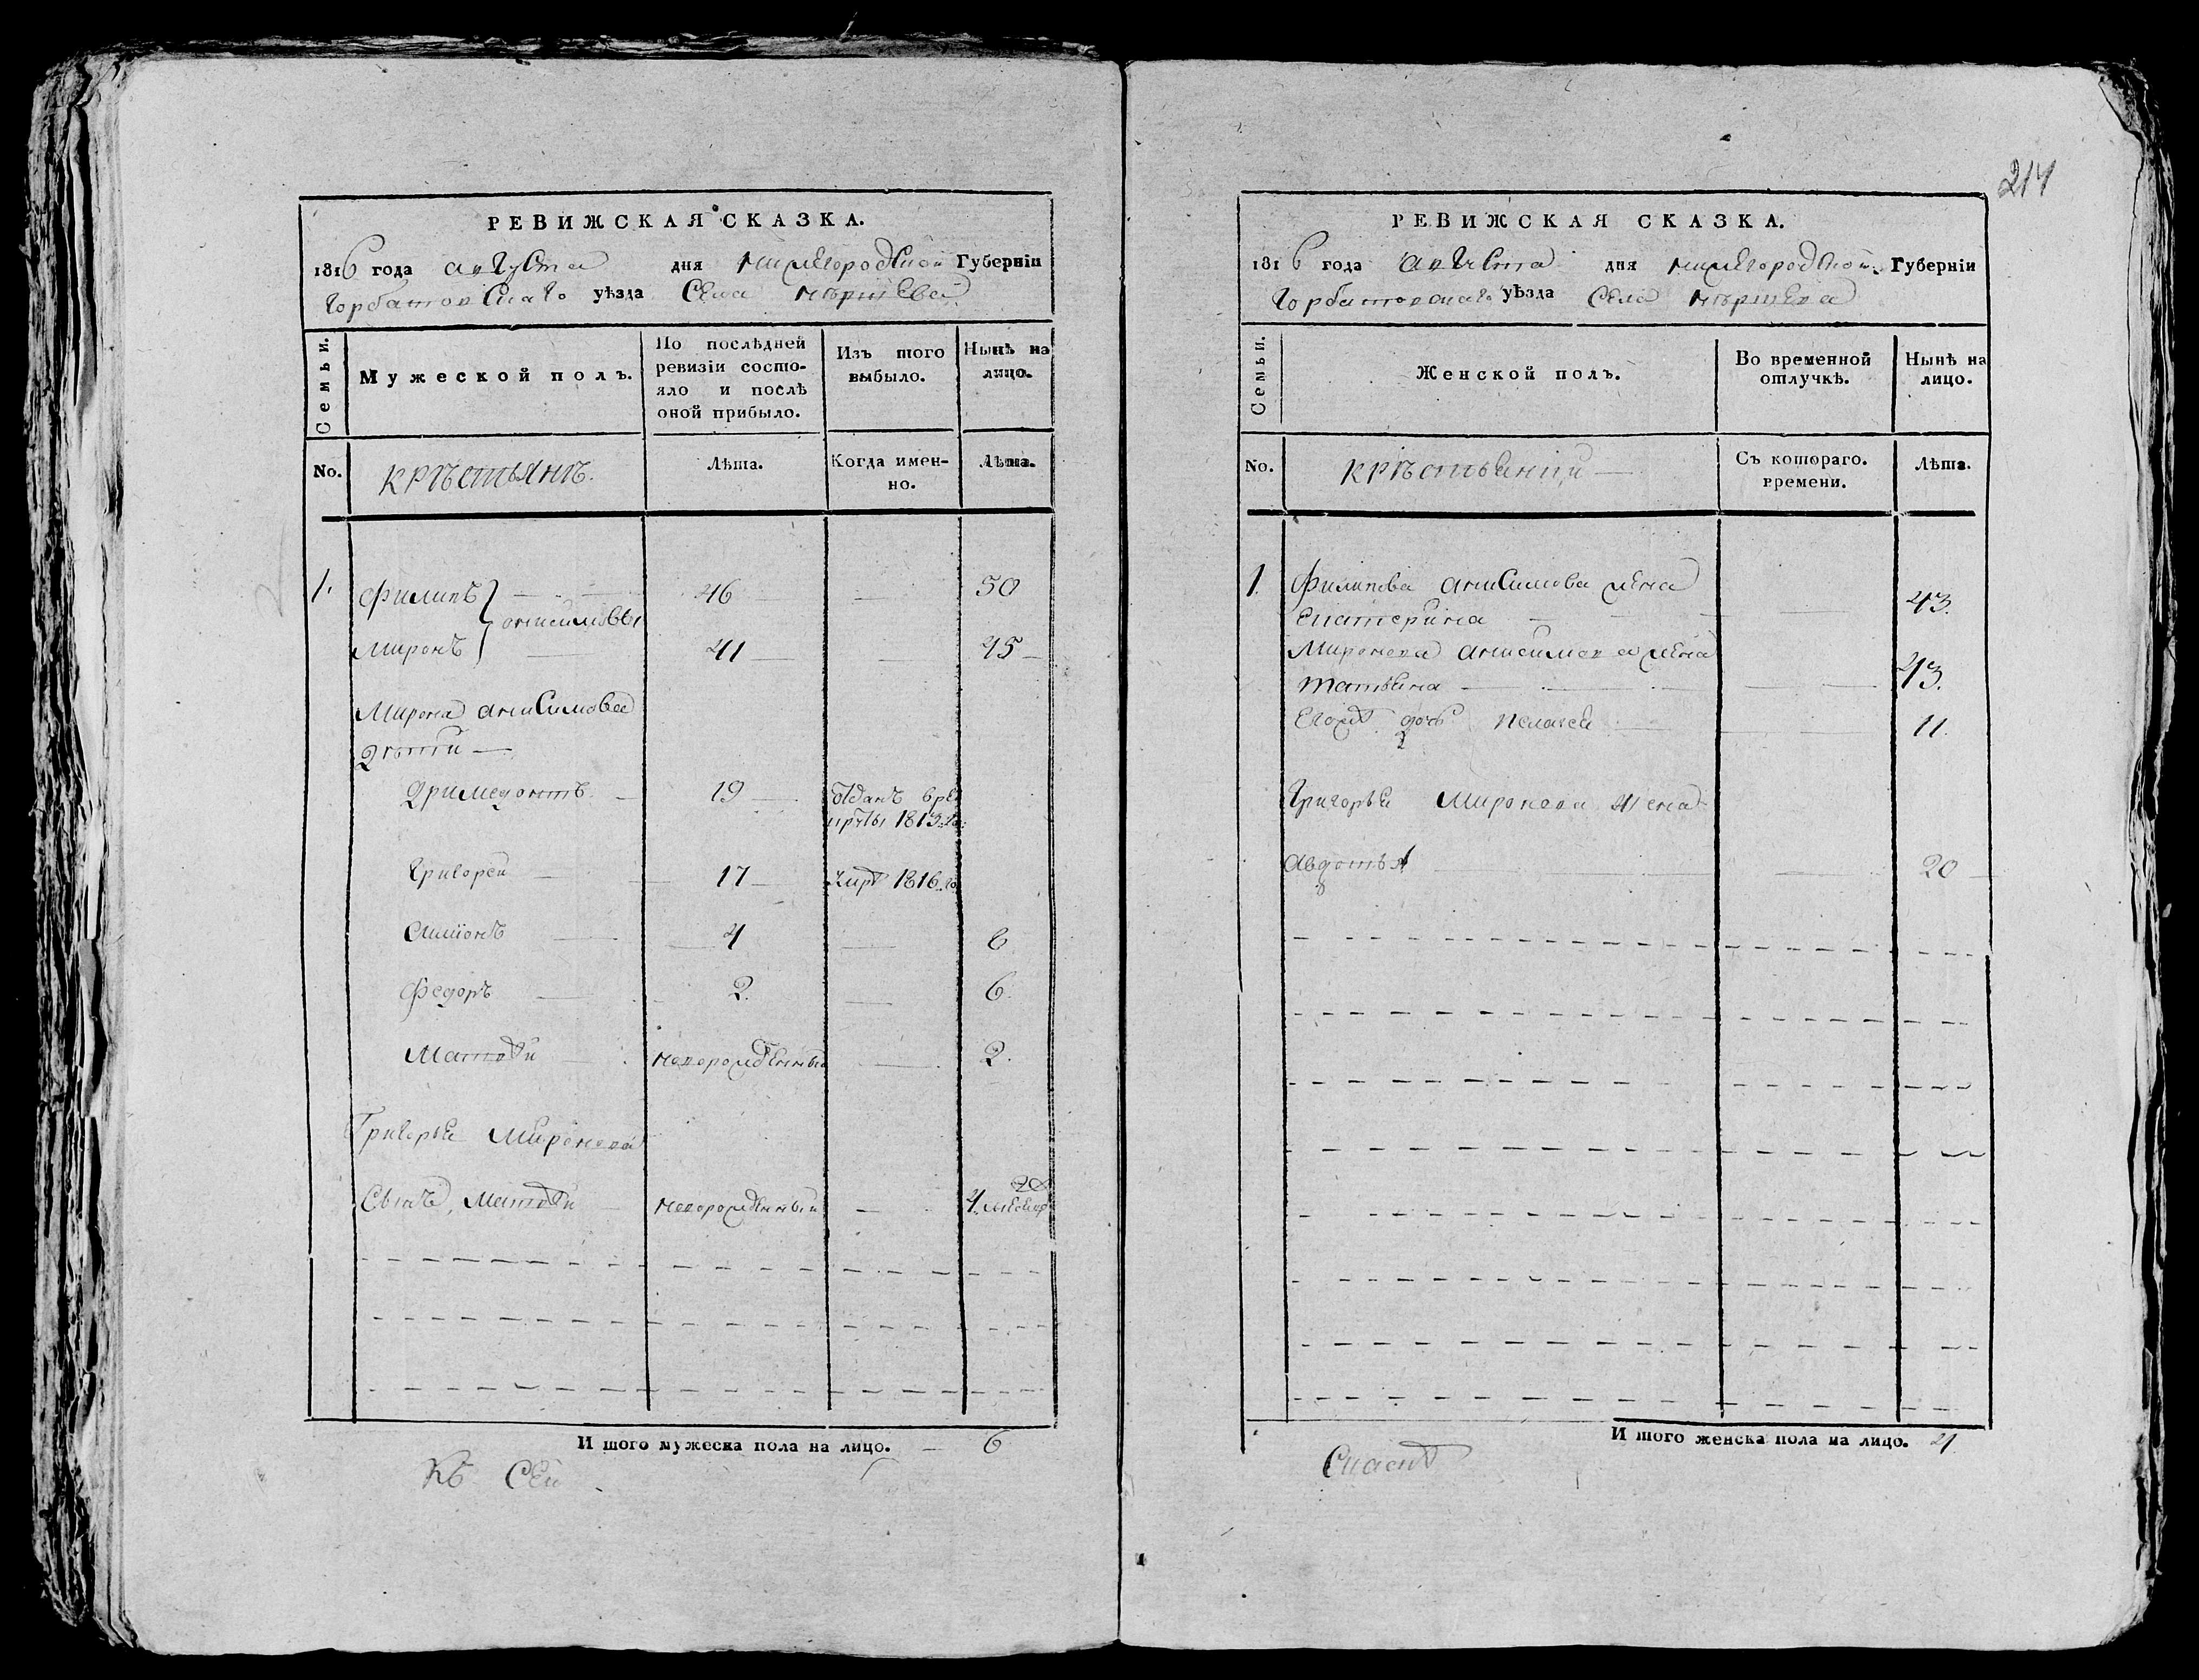 РЕВИЖСКАЯ СКАЗКА.
1816 года августа дня нижегородской Губерніи
горбатовскаго уѣзда Села
Семьи.
Мужеской полъ.
По послѣдней
ревизіи состо-
яло и послѣ
оной прибыло.
Изъ того
выбыло.
Нынѣ на
лицо.
No.
крѣстьянѣ.
Лѣта.
Когда имен-
но.
Лѣта.
1. Филипъ 46 50
анисимовы
Миронъ 41 45
Мирона анисимова
дѣти
19 отданъ врек
1813 го
Григорей 17 1816 го
Симіонъ 4 8
Федоръ 2. 6.
Матвѣй новорожденный 2.
Григорья Миронова
Сынъ, Матвѣй новорожденный 4
И того мужеска пола на лицо. 6
Къ Сей
214
РЕВИЖСКАЯ СКАЗКА.
1816 года августа дня нижегородской Губерніи
горбатовскаго уѣзда Села
Семьи.
Женской полъ.
Во временной
отлучкѣ.
Нынѣ на
лицо.
No.
Съ котораго.
времени.
Лѣта.
1. Филипова анисимова жена
Екатерина 43.
Миронова анисимова жена
татьяна 43.
дочь пелагея 11.
Григорья Миронова жена
авдотья 20
И того женска пола на лицо. 4
Сказкѣ